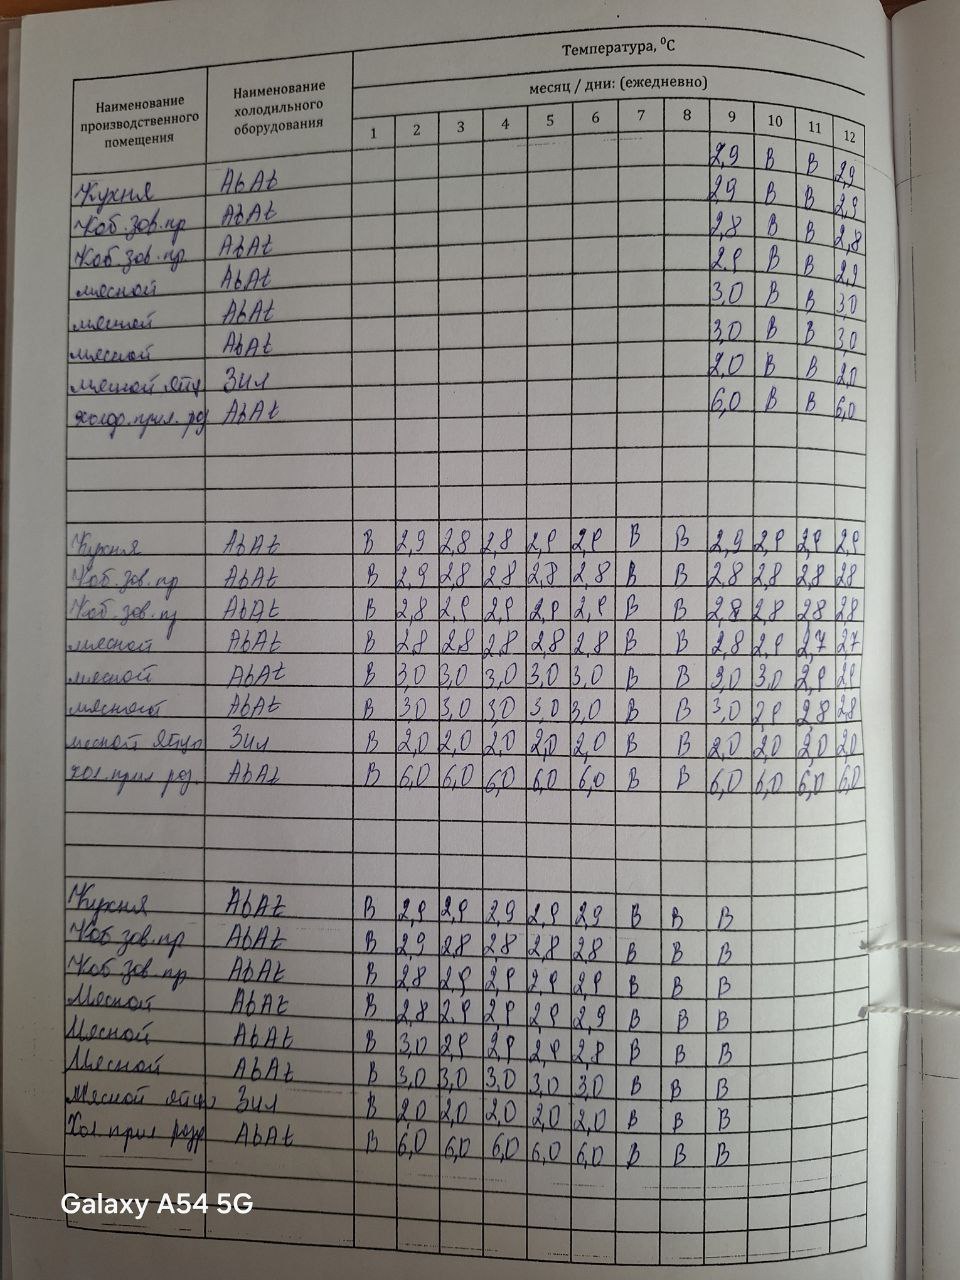 Температура, ⁰С
Наименование производственного помещения Наименование холодильного оборудования месяц / дни: (ежедневно)
1 2 3 4 5 6 7 8 9 10 11 12
Кухня АbАt 2,9 В В 2,9
Каб. зав. пр АbАt 2,9 В В 2,9
Каб. зав. пр. АbАt 2,8 В В 2,8
мясной АbАt 2,9 В В 2,9
мясной АbАt 3,0 В В 3,0
мясной АbАt 3,0 В В 3,0
мясной яйцо Зил 2,0 В В 2,0
АbАt 6,0 В В 6,0
Кухня АbАt В 2,9 2,8 2,8 2,9 2,9 В В 2,9 2,9 2,9 2,9
Каб. зав. пр АbАt В 2,9 2,8 2,8 2,8 2,8 В В 2,8 2,8 2,8 2,8
Каб. зав. пр АbАt В 2,8 2,9 2,9 2,9 2,9 В В 2,8 2,8 2,8 2,8
мясной АbАt В 2,8 2,8 2,8 2,8 2,8 В В 2,8 2,9 2,7 2,7
мясной АbАt В 3,0 3,0 3,0 3,0 3,0 В В 3,0 3,0 2,9 2,9
мясной АbАt В 3,0 3,0 3,0 3,0 3,0 В В 3,0 2,9 2,8 2,8
мясной яйцо Зил В 2,0 2,0 2,0 2,0 2,0 В В 2,0 2,0 2,0 2,0
хол. прил роз. АbАt В 6,0 6,0 6,0 6,0 6,0 В В 6,0 6,0 6,0 6,0
Кухня АbАt В 2,9 2,9 2,9 2,9 2,9 В В В
Каб зав. пр АbАt В 2,9 2,8 2,8 2,8 2,8 В В В
Каб зав. пр АbАt В 2,8 2,9 2,9 2,9 2,9 В В В
Мясной АbАt В 2,8 2,9 2,9 2,9 2,9 В В В
Мясной АbАt В 3,0 2,9 2,9 2,9 2,8 В В В
Мясной АbАt В 3,0 3,0 3,0 3,0 3,0 В В В
Мясной яйцо Зил В 2,0 2,0 2,0 2,0 2,0 В В В
Хол прил разд АbАt В 6,0 6,0 6,0 6,0 6,0 В В В
Galaxy A54 5G